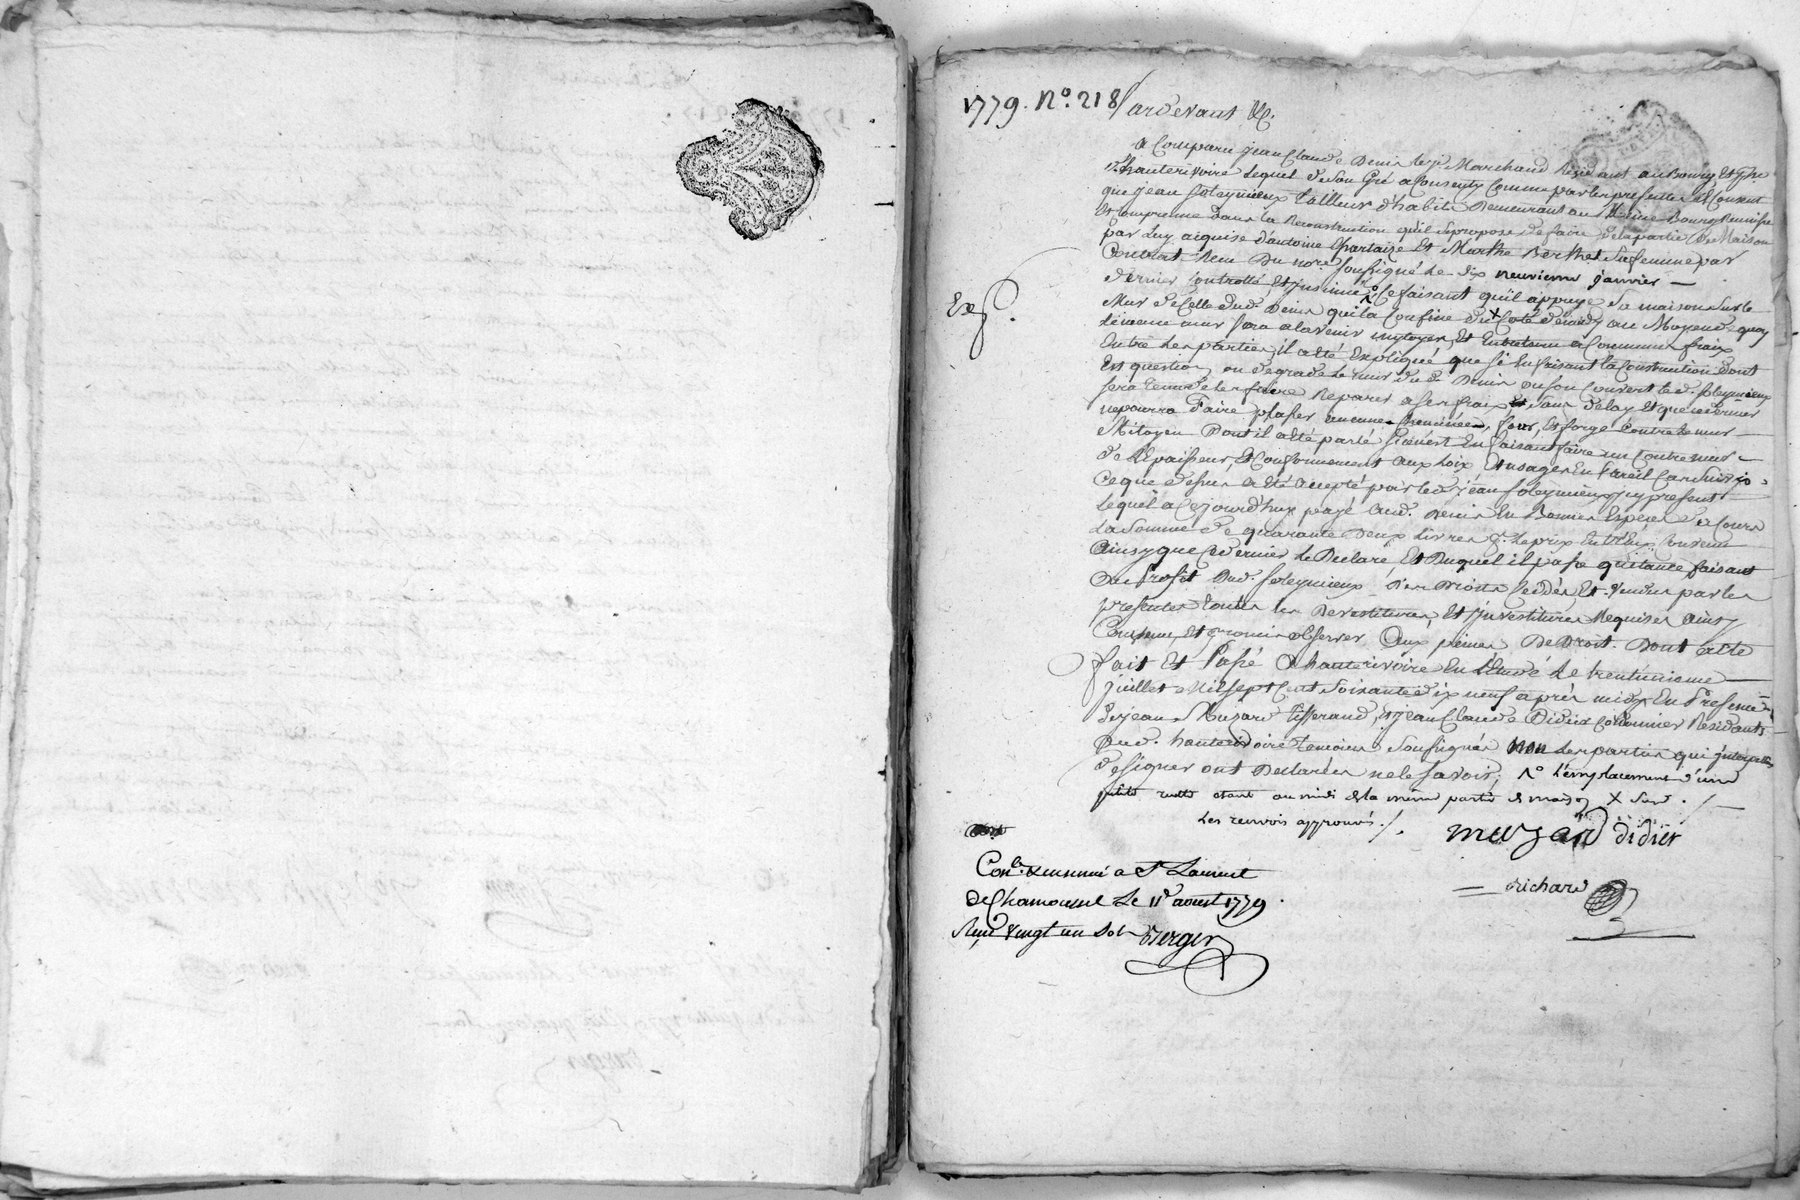 1779. No. 218 Pardevant &c.
a Comparu jean Claude Denis le je Marchand Résidant au Bourg et psse
d'hauterivoire Lequel de Son Gré a Consenty Comme par les presentes il Consent
que jean soleymieux tailleur d'habits Demeurant au Même Bourg
Et Comprenne dans la Reconstruction qu'il Se propose de faire de la partie de Maison
par Luy aiquise d'antoine Chartaize Et Marthe Berthet Sa femme par
Contrat Reçu Du nore Soussigné Le dix neuvieme janvier
dernier Controllé Et Insinué Ce faisant qu'il appuye Sa maison Sur le
Mur de Celle dud. Denis qui la Confine du Coté au Moyend quoy
Le meme mur Sera a lavenir mitoyen, Et Entretenu a Communs fraix
Entre Les parties, il a été Expliqué que Si En faisant la Construction Dont
Est question, on degrade Le mur dud. Denis ou Son Couvert led. soleymieux
Sera tenu de les faire Reparer a Ses fraix Et Sans delay Et que ce dernier
ne pourra Faire plaser aucunes Cheminées, four, Et forge Contre Le mur
Mitoyen Dont il a été parlé Si Ce n'est En faisant faire un Contremur
de Lépaisseur, Et Conformement aux Loix Et usages En Pareil Cas Suivis
Ce que dessus a été accepté par led. jean soleymieux icy present
Lequel a Cejourd'huy payé aud. Denis En Bonnes Espèces de Cours
La Somme de quarante Deux Livres pr. Le prix Entr'Eux Convenu
Ainsy que Ce dernier Le Declare, Et Duquel il passe quitance faisant
au Profit Dud. soleymieux Des Droits Cédés Et Vendus par les
presentes toutes les Devestitures, Et Investitures Requises Ainsy
Convenu, Et promis observer Aux peines De Droit. Dont acte
fait Et Passé a hauterivoire En L'Etude Le trentunieme
juillet Mil Sept Cent Soixante dix neuf après midy En Presence
de jean Muzard tisserand, Et jean Claude Didier Cordonnier Residants
aud. hauterivoire temoins Soussignés non Les parties qui
de Signer ont Declarées ne le Savoir, L'emplacement d'une
petite ruette etant au midi de la même partie de maison, X Sud. /.
Les renvois approuvés. /.
Exp.
muzard didier
Richard
Conlé & insinué a St Laurent
de Chamousset Le 11e aoust 1779.
Reçu Vingt un Sols Verger